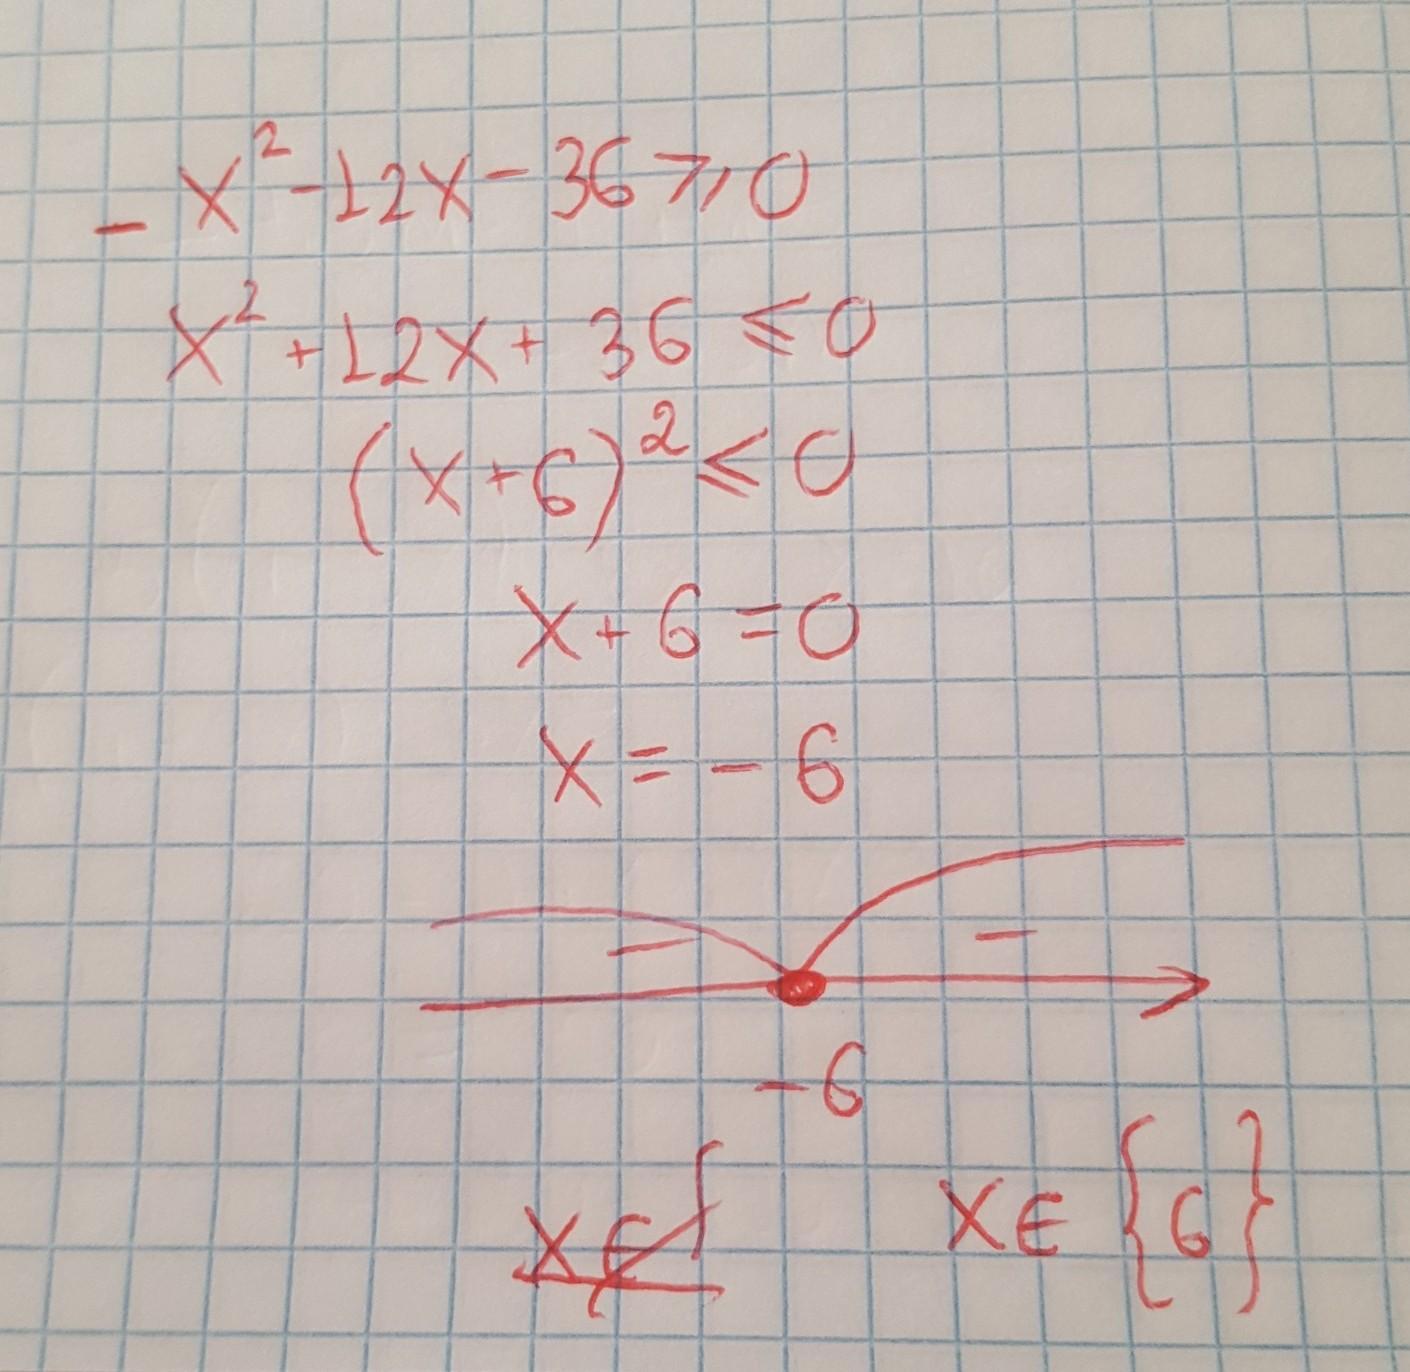 - x² - 12x - 36 ⩾ 0
x² + 12x + 36 ⩽ 0
(x + 6)² ⩽ 0
x + 6 = 0
x = - 6
- -
-6
x ∈ { x ∈ {6}